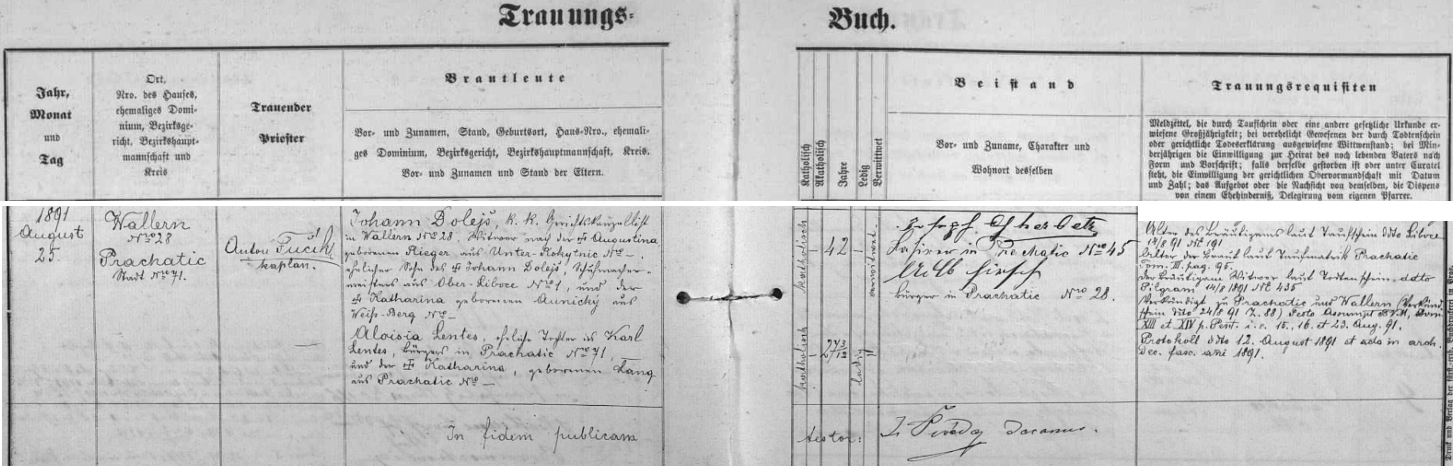 Trauungs-
Buch.
Jahr,
Monat
und
Tag
Ort,
Nro. des Hauses,
ehemaliges Domi-
nium, Bezirksge-
richt, Bezirkshaupt-
mannschaft und
Kreis
Trauender
Priester
Brautleute
Vor- und Zunamen, Stand, Geburtsort, Haus-Nro., ehemali-
ges Dominium, Bezirksgericht, Bezirkshauptmannschaft, Kreis.
Vor- und Zunamen und Stand der Eltern.
Katholisch
Akatholisch
Jahre
Ledig
Verwittwet
Beistand
Vor- und Zuname, Charakter und
Wohnort desselben
Trauungsrequisiten
Meldzettel, die durch Taufschein oder eine andere gesetzliche Urkunde er-
wiesene Großjährigkeit; bei verehelicht Gewesenen der durch Todtenschein
oder gerichtliche Todeserklärung ausgewiesene Wittwenstand; bei Min-
derjährigen die Einwilligung zur Heirat des noch lebenden Vaters nach
Form und Vorschrift; falls derselbe gestorben ist oder unter Curatel
steht, die Einwilligung der gerichtlichen Obervormundschaft mit Datum
und Zahl; das Aufgebot oder die Nachsicht von demselben, die Dispens
von einem Ehehinderniß, Delegirung vom eigenen Pfarrer.
1891
August
25.
Wallern
Nro 28
Prachatic
Stadt Nro 71.
Anton Fucik
kaplan.
Johann Dolejš, k. k. Gerichtskanzellist
in Wallern No 28, Witwer nach der † Augustina
geborenen Rieger aus Unter-Rokytnic No —
ehelicher Sohn des † Johann Dolejš, Schuhmacher-
meisters aus Ober-Liboc No 1, und der
† Katharina geborenen aus
Weiss-Berg No —
Aloisia Lentes, eheliche Tochter des Karl
Lentes, bürgers in Prachatic No 71,
und der † Katharina, geborenen Lang
aus Prachatic No —
katholisch
42
verwitwet
katholisch
27 3/12
ledig
in Prachatic Nro 45
bürger in Prachatic Nro 28.
Alter des Bräutigams laut Taufschein ddto Liboce
14/8 91 No 191
Alter der Braut laut Taufmatrik Prachatic
Tom. III. pag. 95.
der Bräutigam Witwer laut Todtenschein ddto
Pilgram 14/8 1891 No 435
Verkündigt zu Prachatic und Wallern (Verkünd-
schein ddto 24/8 91 Z. 88) Festo Assumpt. B.V.M., Dom
XIII et XIV p. Pent. i. e. 15, 16. et 23. Aug. 91.
Protokoll ddto 12. August 1891 et acta in arch.
dec. fasc. ani 1891.
In fidem publicam
testor:
decanus.